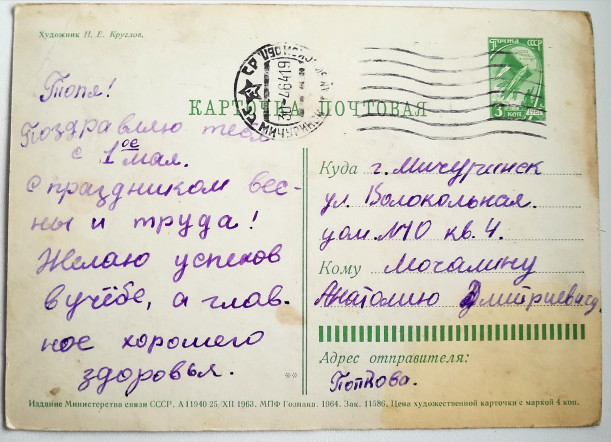 Художник Н. Е. Круглов.
ПОЧТА СССР
3 КОП.
30-46419
МИЧУРИНСК
КАРТОЧКА ПОЧТОВАЯ
Толя!
Поздравляю тебя
с 1ое мая.
С праздником вес-
ны и труда!
Желаю успехов
в учёбе, а глав-
ное хорошего
здоровья.
Куда г. Мичуринск
ул Волокольная.
дом. №10 кв. 4.
Кому Мочалину
Анатолию Дмитриевичу
Адрес отправителя:
Попкова.
**
Издание Министерства связи СССР. А 11940 25/XII 1963. МПФ Гознака. 1964. Зак. 11586. Цена художественной карточки с маркой 4 коп.